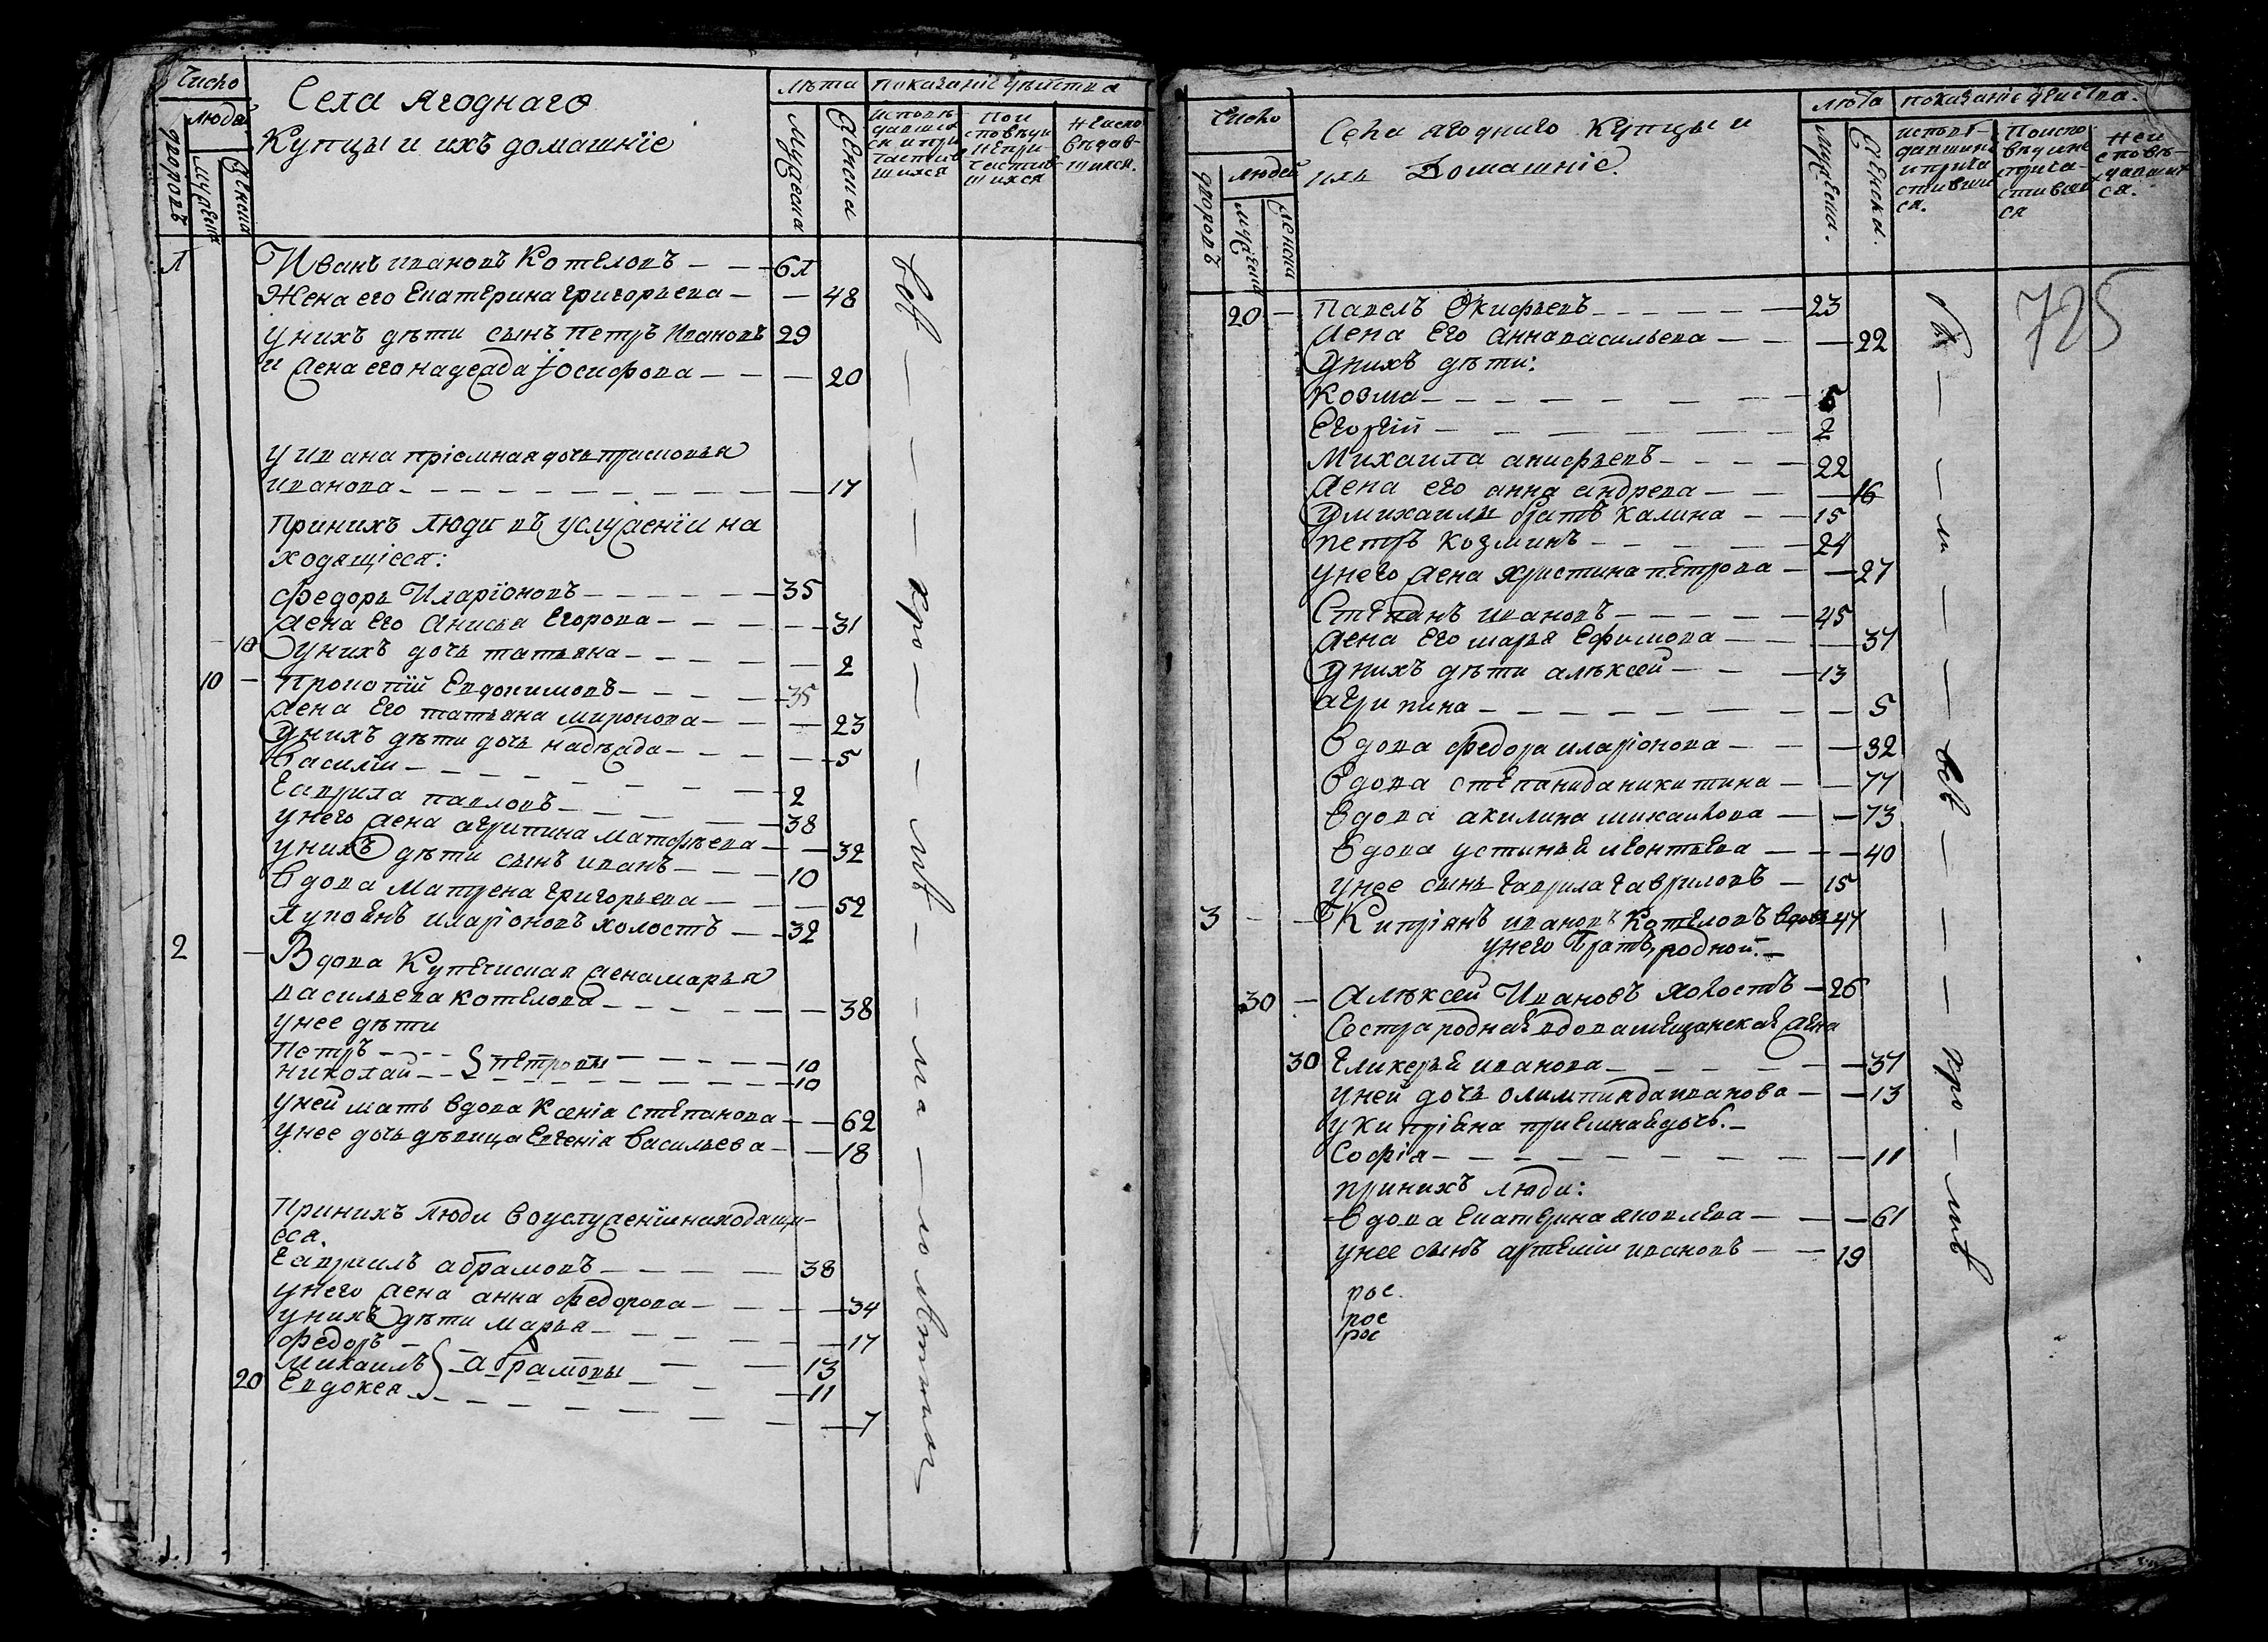 Число
Лѣта показаніе дѣйства
людей
дворовъ
мужеска
женска
Села Ягоднаго
Купцы и ихъ домашнїе
Мужеска
Женска
исповѣ-
давшіи
ся и при
частив
шихся
Пои
сповѣди
непри
частив
шихся
Неиспо
вѣдав-
шихся.
Иванъ ивановъ Котеловъ – – – 61
Жена его Екатерина григорьева – – 48
У нихъ дѣти сынъ петръ Ивановъ 29
и жена его надежда їосифова – – – 20
У ивана прїемная дочь прасковья
иванова – – – – – 17
При нихъ люди въ услуженїи на
ходящїеся:
федоръ Иларїоновъ – – – 35
жена Его Анисья Егорова – – – 31
10 У нихъ дочь татьяна – – – 2
10 – Прокопїй Евдокимовъ – – – 35
жена Его татьяна миронова – – – 23
У нихъ дѣти дочь надежда – – – 5
Василїи – – – 2
Гаврила павловъ – – – 38
У него жена агрипина Матфѣева – – 32
У нихъ дѣти сынъ иванъ – – – 10
Вдова Матрена григорьева – – – 52
Лукоянъ иларїоновъ холостъ – – 32
2 – Вдова Купеческая жена марья
васильева котелова – – – 38
У нее дѣти
Петръ – – –
Николай – – } петровы – – – 10
– – – 10
У ней мать вдова Ксенїа степанова – – 62
У нее дочь дѣвица Евгенїа Васильева – – 18
При нихъ люди воуслуженїи находящи-
еся.
Гаврилъ абрамовъ – – – 38
У него жена анна федорова – – – 34
У нихъ дѣти марья – – – 17
федоръ –
михаилъ } абрамовы – – 13
20 Евдокея – – – 11
– 7
Всѣ – – – – – – – – – –
725
Число
лѣта показаніе дѣиства.
людей
дворовъ
мужеска
женска
Села ягоднаго купцы и
ихъ Домашнїе.
мужеска.
Женска.
исповѣ-
давшіи
и прича
стивши
ся.
Поиспо
вѣди не
прича-
стивши
ся
Неи
сповѣ-
давши
ся.
20 – Павелъ Окифьевъ – – – 23
жена Его анна васильева – – – 22
У нихъ дѣти:
Козма – – – 5
Егоргїй – – – 2
Михаила акифьевъ – – – 22
жена его анна андрева – – – 16
У михаилы братъ калина – – 15
петръ козминъ – – – 24
У него жена христина петрова – – 27
Степанъ ивановъ – – – 45
жена Его марья Ефимова – – – 37
У нихъ дѣти алѣксѣй – – – 13
агрипина – – – 5
вдова федора иларїонова – – – 32
Вдова степанида никитина – – 77
Вдова акилина михаилова – – 73
Вдова устинья леонтьева – – – 40
У нее сынъ гаврила гавриловъ – 15
3 – – Кипрїянъ ивановъ Котеловъ вдовъ 47
У него братъ родной. –
30 – Алѣксѣй Ивановъ холостъ – 26
Сестра родная вдова мещанская жена
30 Гликерья иванова – – – 37
У ней дочь олимпияда иванова – – 13
У кипрїяна прїемная дочь. –
Софїя – – – 11
При нихъ люди:
Вдова Екатерина яковлева – – – 61
У нее сынъ артемїи ивановъ – – 19
рос.
рос
рос